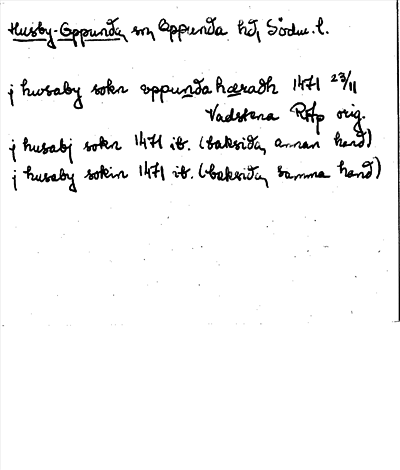 Husby-Oppunda sn, Oppunda hd, Södm. l.
j hwsaby sokn oppunda hæradh 1471 23/11
Vadstena RAp orig.
j husabj sokn 1471 ib. (baksida, annan hand)
j husaby sokin 1471 ib. (baksida, samma hand)